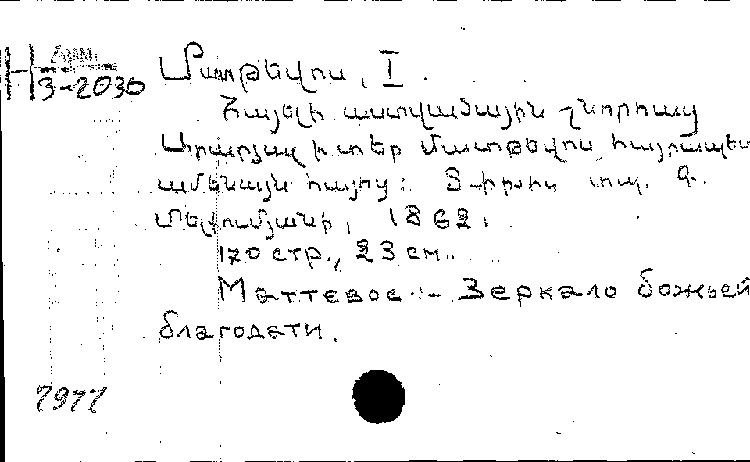 H 3-2030
Մատթեվոս, I.
Հայելի աստվածային շնորհաց
Արարյալ ի տեր Մատթեվոս հայրապետ
ամենայն հայոց: Տփխիս տպ. Գ.
Մելքումյանի, 1862.
170 стр., 23 см.
Маттевос - Зеркало божьей
благодати.
7977